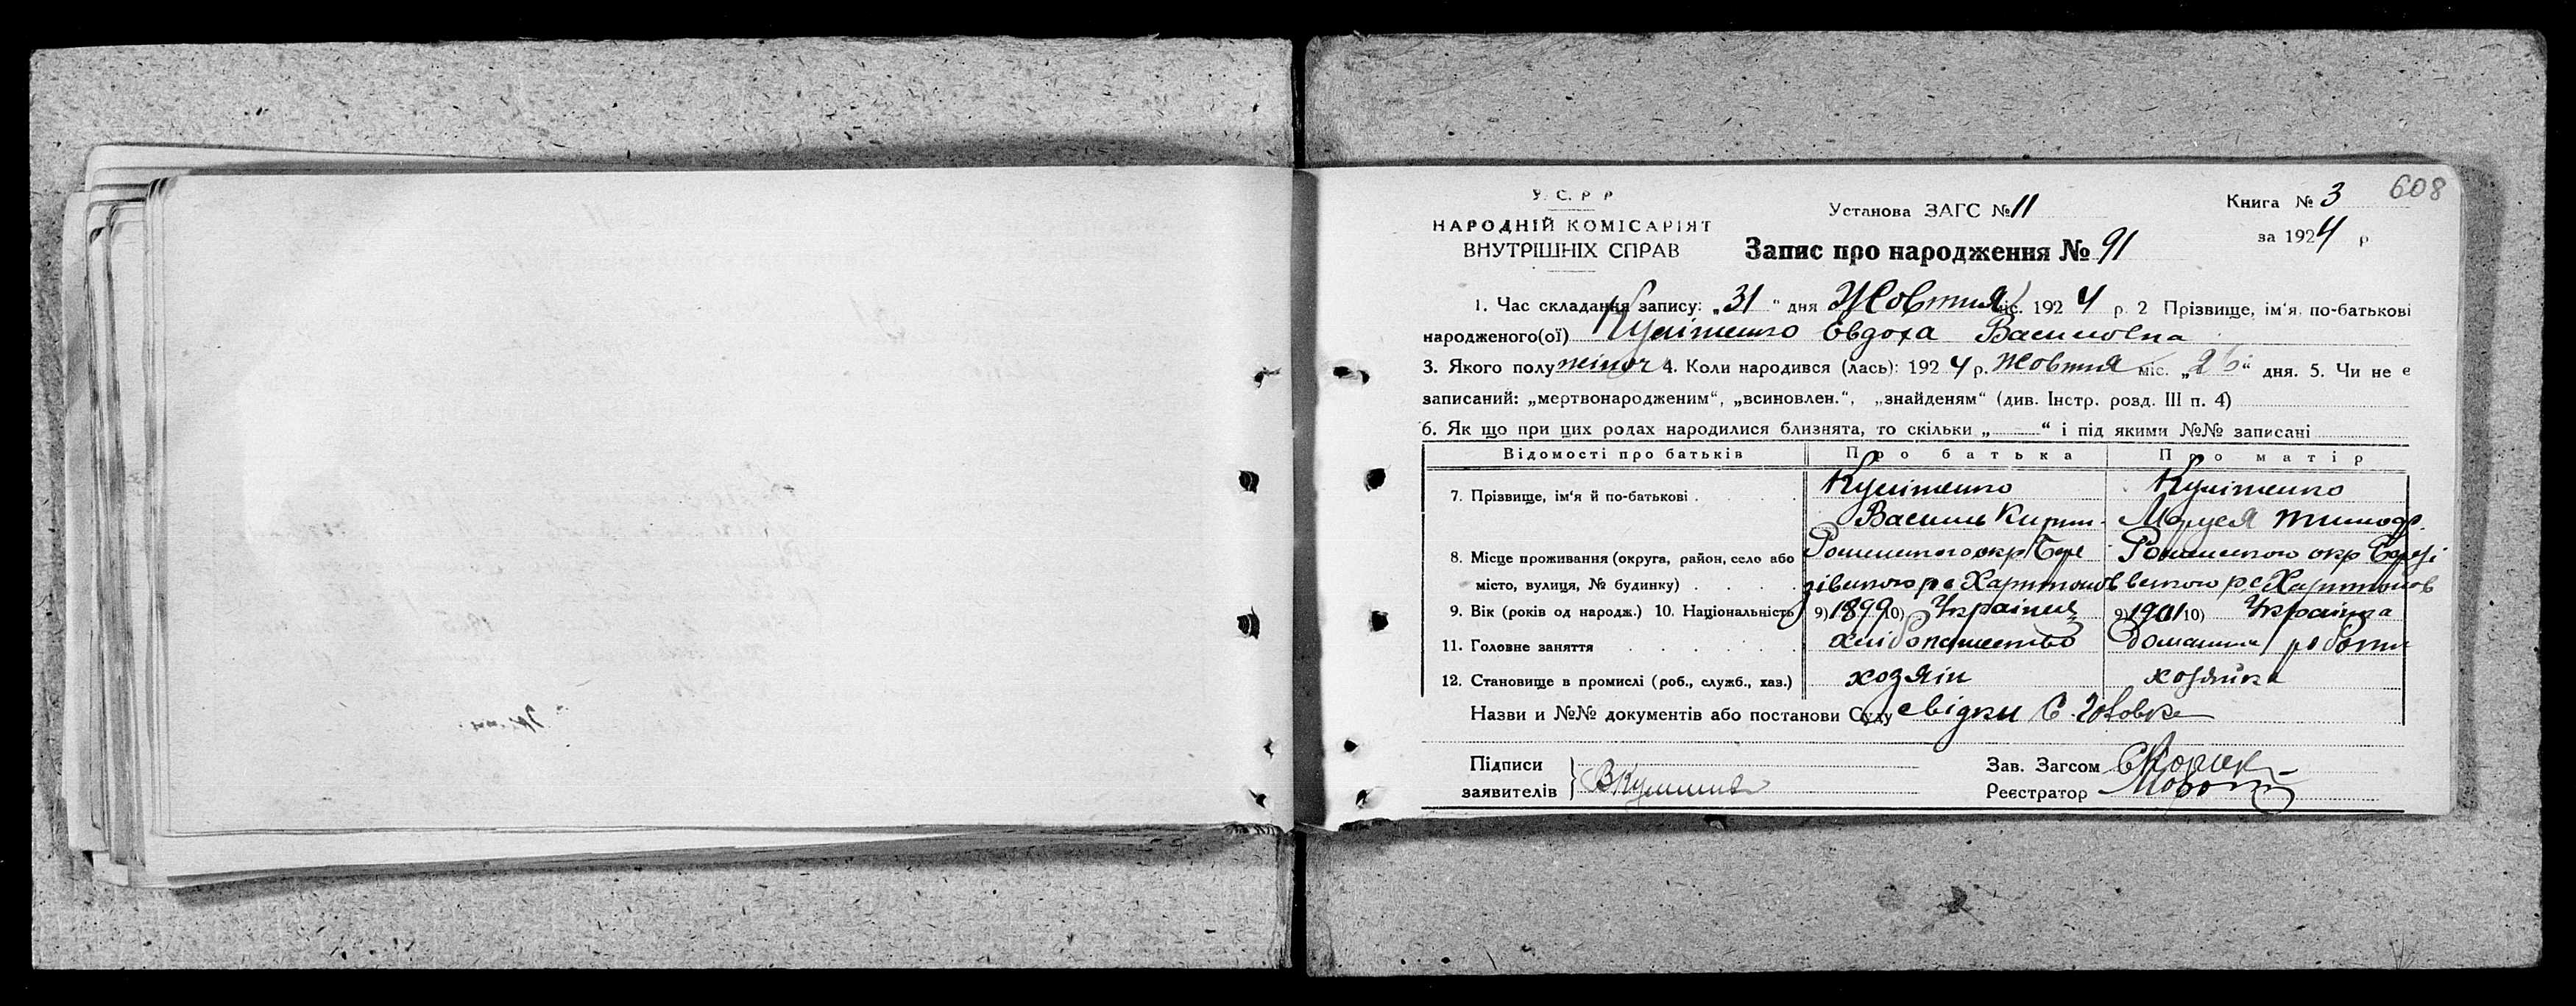 608
У. С. Р. Р
НАРОДНІЙ КОМІСАРІЯТ
ВНУТРІШНІХ СПРАВ
Установа ЗАГС № 11
Книга № 3
за 1924 р
Запис про народження № 91
1. Час складання запису: „31" дня Жовтня міс. 1924 р. 2 Прізвище, ім'я, по-батькові
народженого(ої) Кулітенко Евдоха Василовна
3. Якого полу жіноч 4. Коли народився (лась): 1924 р. Жовтня міс. „26" дня. 5. Чи не є
записаний: „мертвонародженим", „всиновлен.", „знайденям" (див. Інстр. розд. III п. 4)
6. Як що при цих родах народилися близнята, то скільки „ " і під якими №№ записані
Відомості про батьків Про батька Про матір
7. Прізвище, ім'я й по-батькові . . . Кулітенко Кулітенко
Василь Маруся Тимоф.
8. Місце проживання (округа, район, село або Роменского окр Бере Роменского окр Березі
місто, вулиця, № будинку) . . . . зівського рс Хартонов вского рс Хартонов
9. Вік (років од народж.) 10. Національність 9) 1899 10) Українец 9) 1901 10) Українка
11. Головне заняття . . . . . . хлібопашество Домашни роботи
12. Становище в промислі (роб., служб., хаз.) хозяін хозяйка
Назви и №№ документів або постанови Суду свідки С.
Підписи
заявителів
Зав. Загсом
Реєстратор Мороз